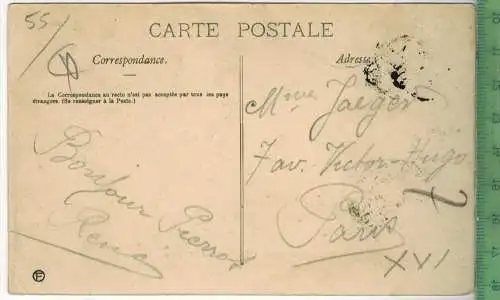 55
CARTE POSTALE
Correspondance.
Adresse
La Correspondance au recto n'est pas acceptée par tous les pays
étrangers. (Se renseigner à la Poste.)
Bonjour Pierrot
René
Mme Jaeger
7 av. Victor-Hugo
Paris
XVI